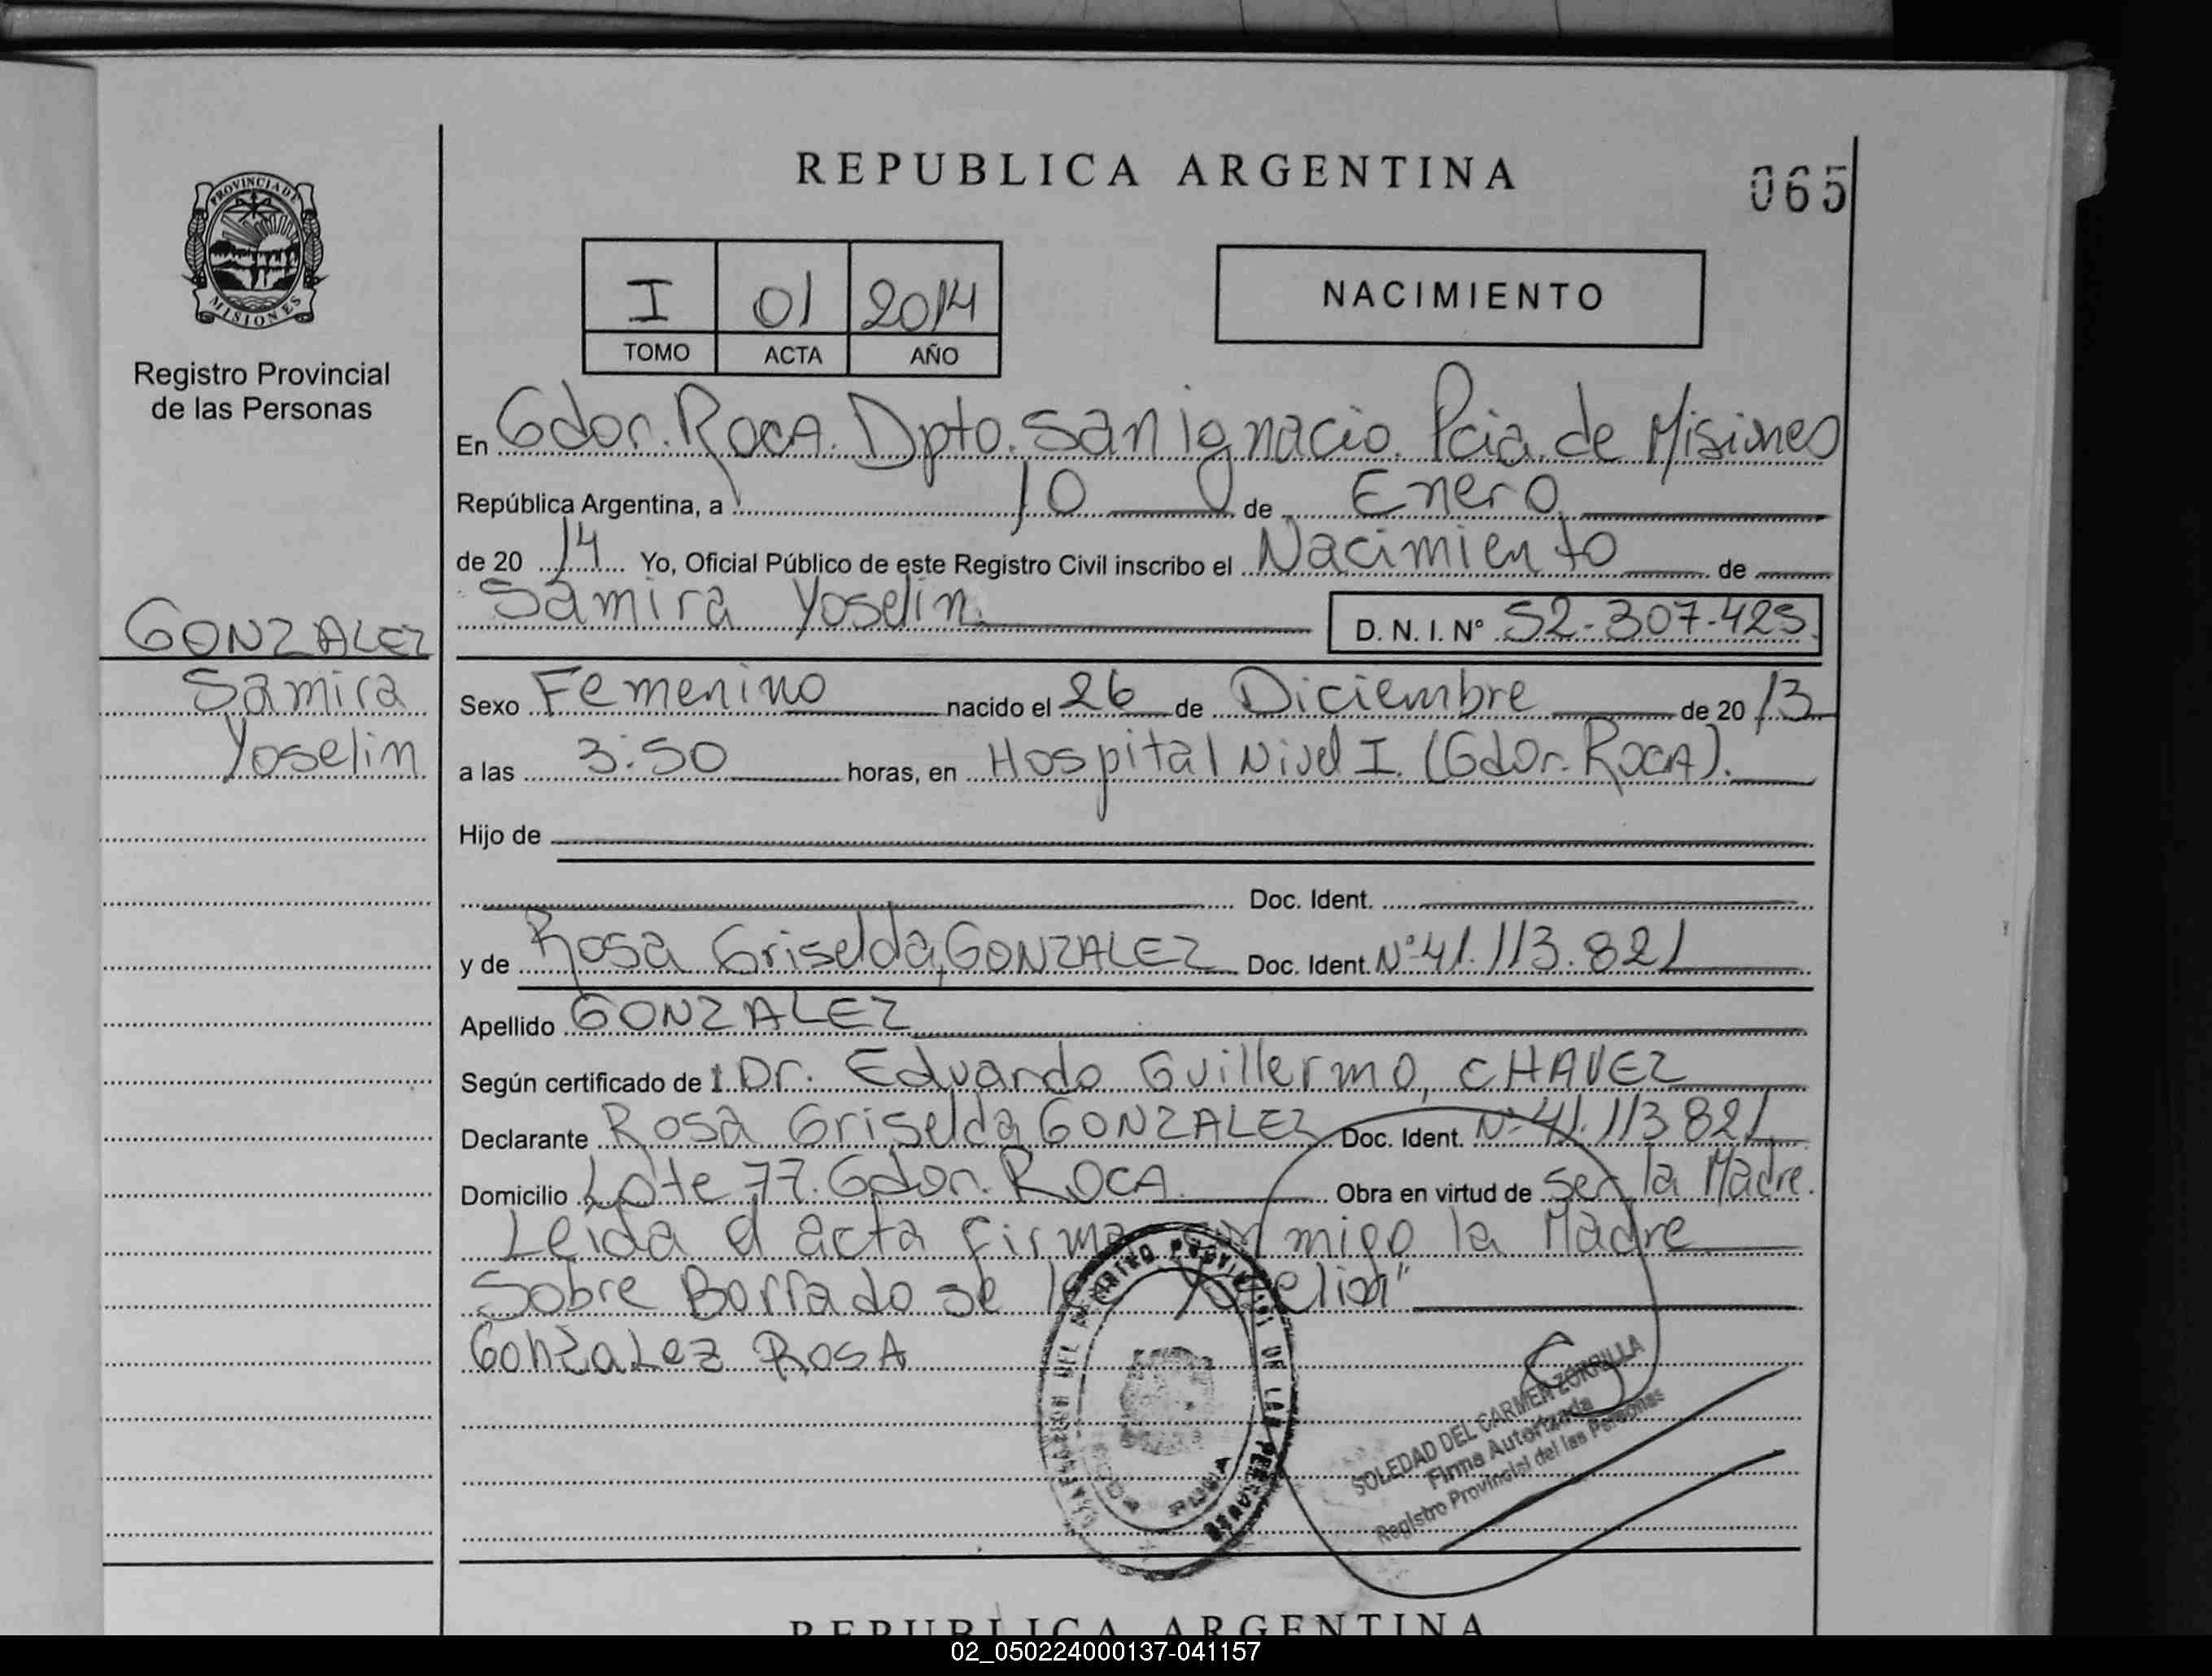 REPUBLICA ARGENTINA
065
PROVINCIA DE
MISIONES
Registro Provincial
de las Personas
I 01 2014
TOMO ACTA AÑO
NACIMIENTO
En Gdor. Roca. Dpto. San Ignacio. Pcia. de Misiones
República Argentina, a 10 de Enero
de 20 14 Yo, Oficial Público de este Registro Civil inscribo el Nacimiento de
Samira Yoselin. D. N. I. N° 52-307-425
GONZALEZ
Samira
Yoselin
Sexo Femenino nacido el 26 de Diciembre de 20 13
a las 3:50 horas, en Hospital Nivel I. (Gdor. Roca).
Hijo de
Doc. Ident.
y de Rosa Griselda, GONZALEZ Doc. Ident. N° 41.113.821
Apellido GONZALEZ
Según certificado de Dr. Eduardo Guillermo, CHAVEZ
Declarante Rosa Griselda GONZALEZ Doc. Ident. N° 41.113.821
Domicilio Lote 77. Gdor. ROCA. Obra en virtud de ser la Madre.
Leida el acta firma conmigo la Madre
Sobre Borrado se
Gonzalez RosA
SOLEDAD DEL CARMEN ZORRILLA
Firma Autorizada
Registro Provincial del las Personas
REPUBLICA ARGENTINA
02_050224000137-041157